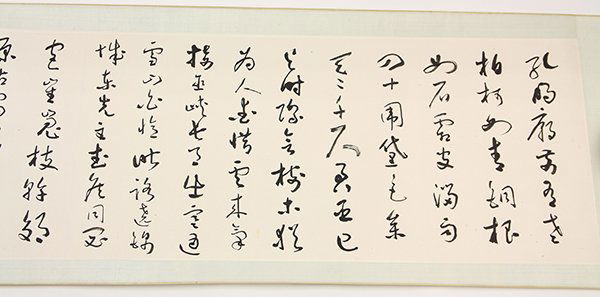 孔明廟前有老
柏柯如青銅根
如石霜皮溜雨
四十圍黛色參
天二千尺君臣已
與時際會樹木猶
為人愛惜雲來氣
接巫峽長月出寒通
雪山白憶昨路遶錦
城東先主武侯同閟
宮崔嵬枝幹郊
原古